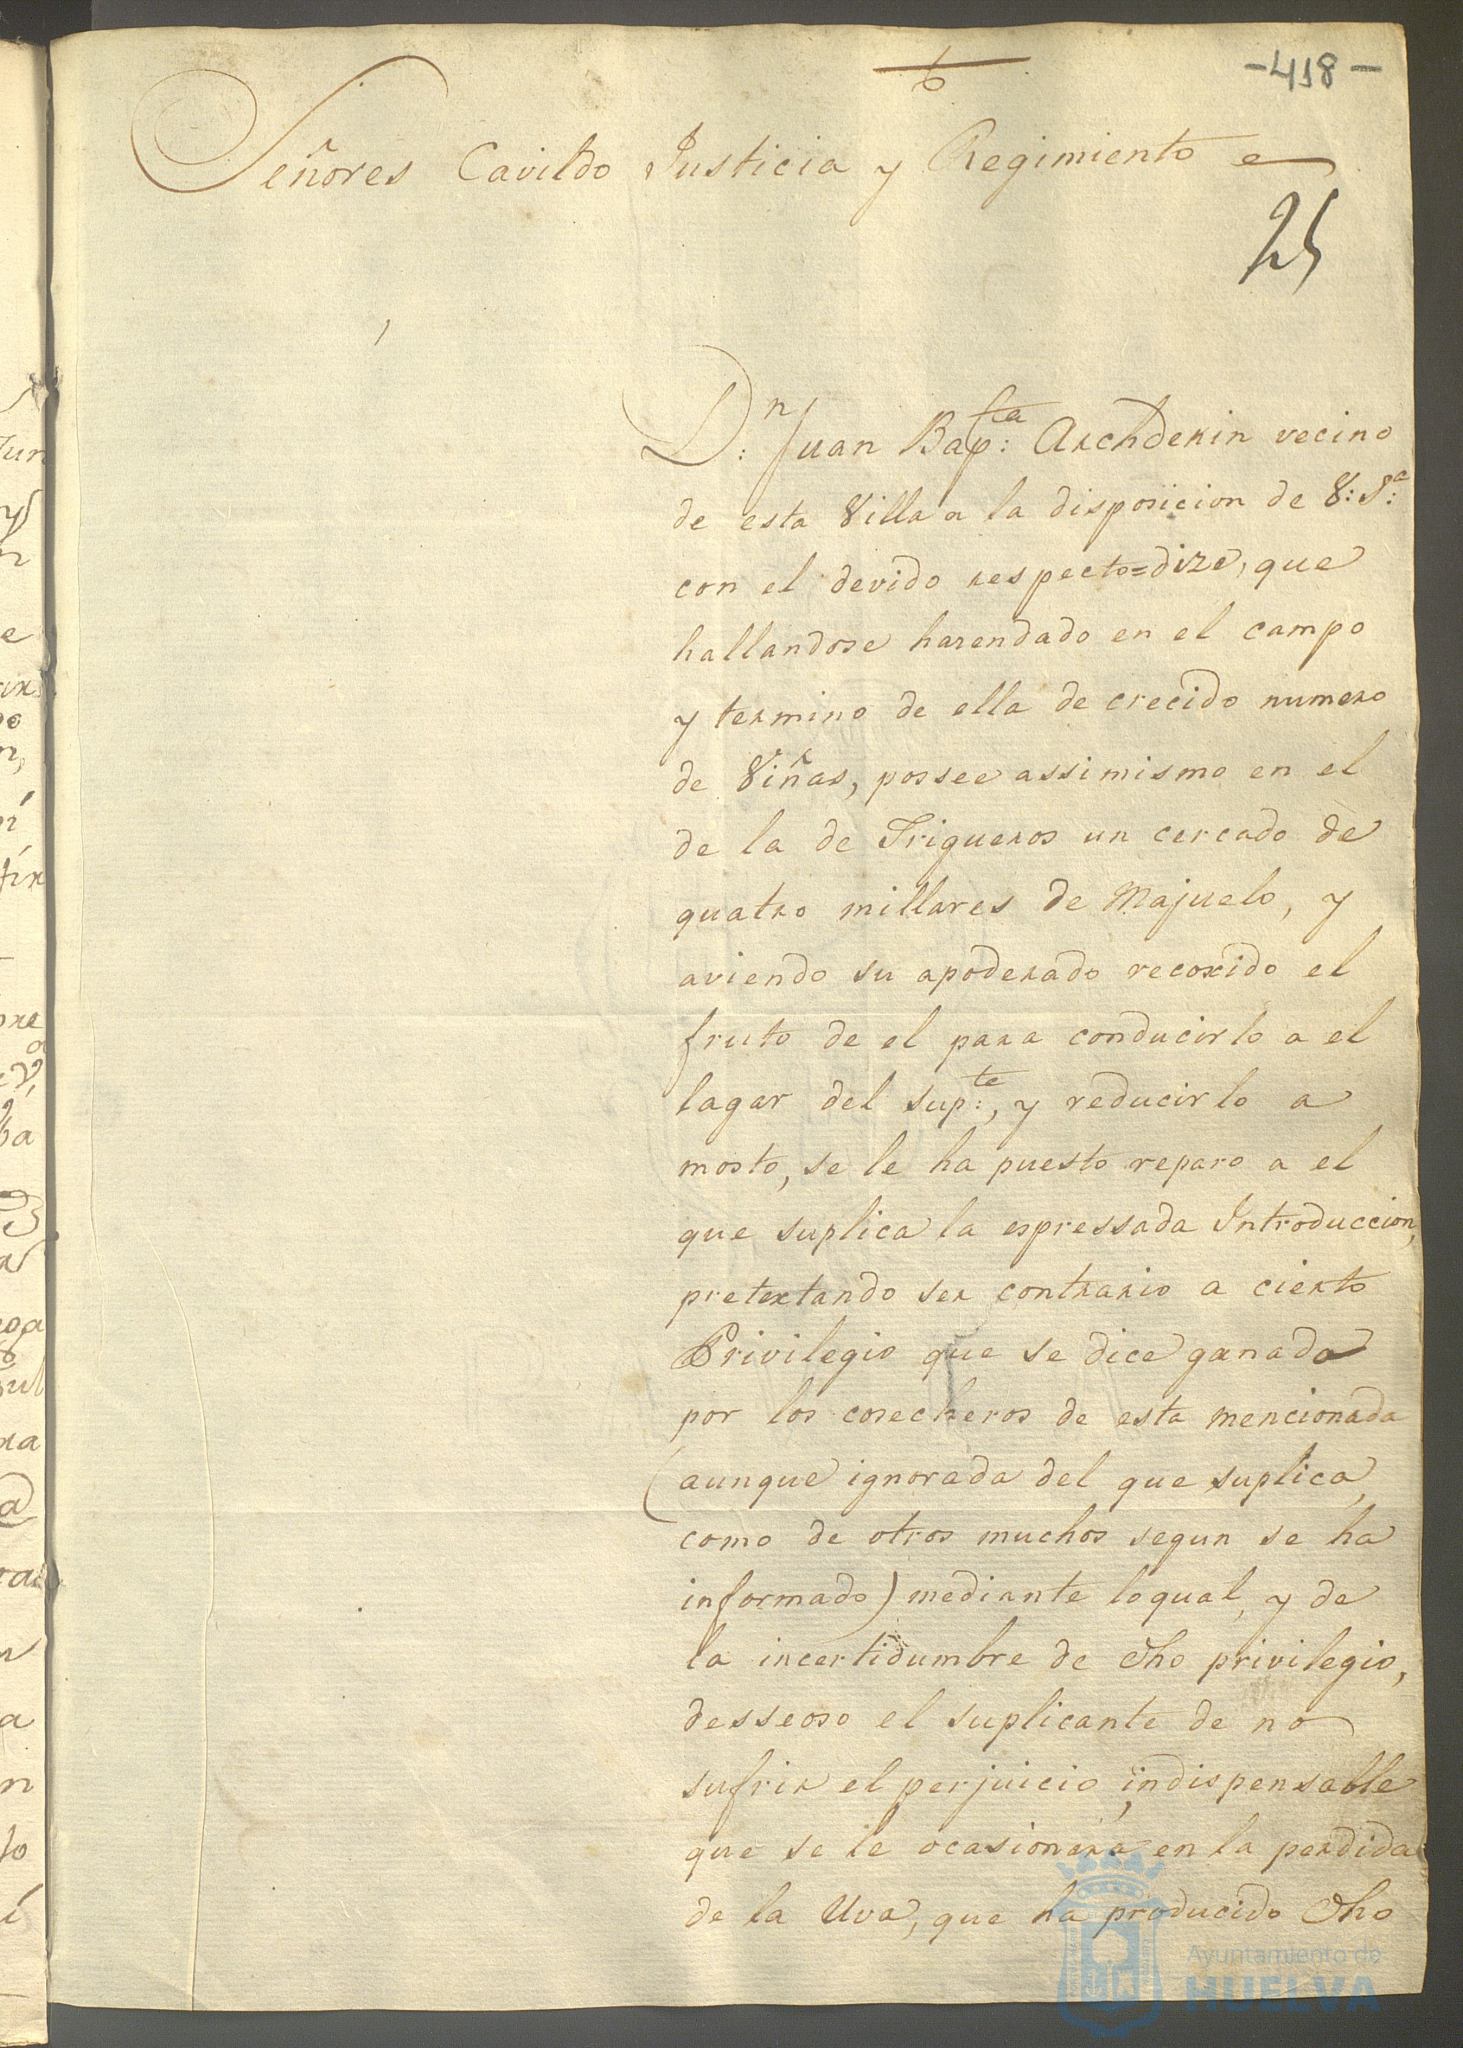 -418-
Señores Cavildo Justicia y Regimiento
25
D.n Juan Bap.ta Archdekin vecino
de esta Villa a la disposicion de V. S.a
con el devido respecto=dize, que
hallandose hazendado en el campo
y termino de ella de crecido numero
de Viñas, possee assimismo en el
de la de Trigueros un cercado de
quatro millares de Majuelo, y
aviendo su apoderado recoxido el
fruto de el para conducirlo a el
lagar del sup.te, y reducirlo a
mosto, se le ha puesto reparo a el
que suplica la espressada Introduccion,
pretextando ser contrario a cierto
Privilegio que se dice ganado
por los cosecheros de esta mencionada
(aunque ignorada del que suplica,
como de otros muchos segun se ha
informado) mediante loqual, y de
la incertidumbre de dho privilegio,
desseoso el suplicante de no
sufrir el perjuicio, indispensable
que se le ocasionara en la perdida
de la Uva, que ha producido dho
Ayuntamiento de
HUELVA